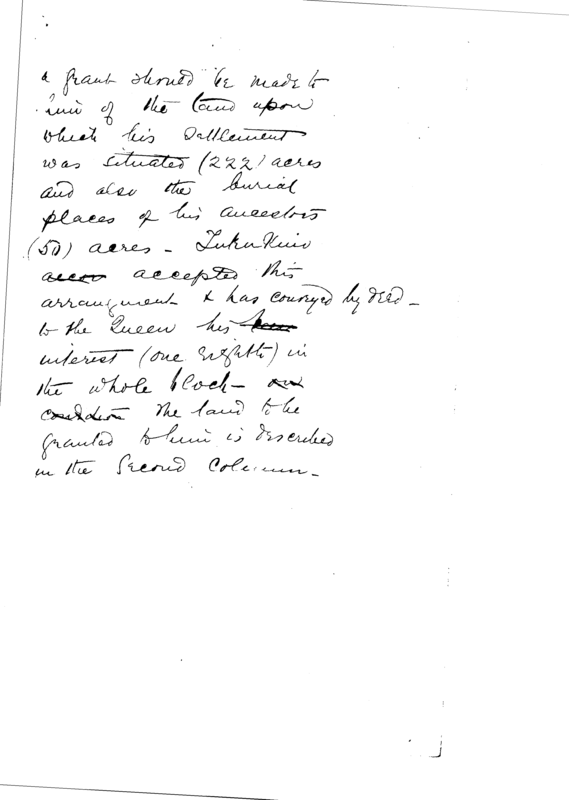 a grant should be made to
him of the land upon
which his Settlement
was situated (222) acres
and also the burial
places of his ancestors
(50) acres - Tukukino
accepted this
arrangment & has conveyed by deed -
to the Queen his
interest (one eighth) in
the whole block - on
condition the land to be
granted to him is described
in the Second Column -